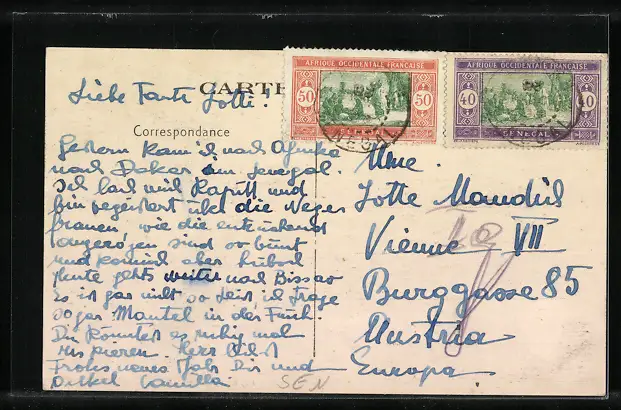 AFRIQUE OCCIDENTALE FRANÇAISE
50 50
AFRIQUE OCCIDENTALE FRANÇAISE
40 40
SENEGAL
CARTE
Correspondance
Liebe Tante Lotte!
Gestern kam ich nach Afrika
nach Dakar im Senegal.
Ich lach mich kaputt und
bin begeistert über die Neger
frauen, wie die entzückend
angezogen sind so bunt
und komisch aber hübsch
Heute gehts weiter nach Bissao
Es ist gar nicht so heiss, ich trage
sogar Mantel in der Früh.
Du könntest es ruhig mal
riskieren. Herzlichst
Frohes neues Jahr Dir und
Onkel Camilla
Mme.
Lotte Mandül
Vienne VII
Burggasse 85
Austria
Europa
SEN